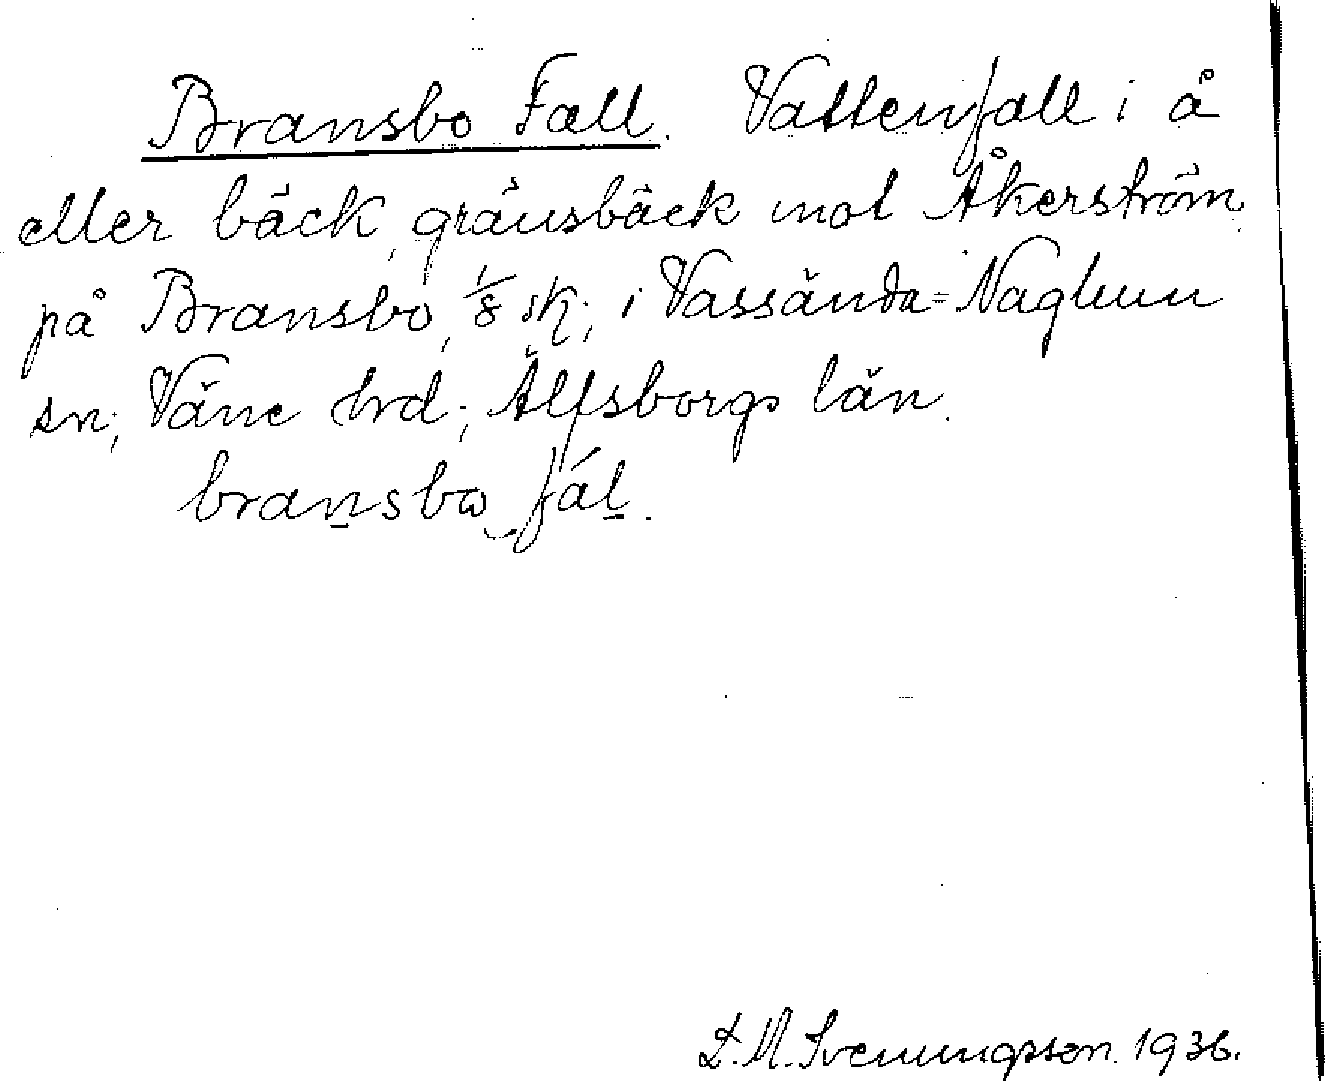 Bransbo Fall. Vattenfall i å
eller bäck, gränsbäck mot Åkerström
på Bransbo, 1/8 sk; i Vassända=Naglum
sn; Väne hrd; Älfsborgs län.
bran̲sbɷ‿fál̲.
D. M. Svenungsson. 1936.